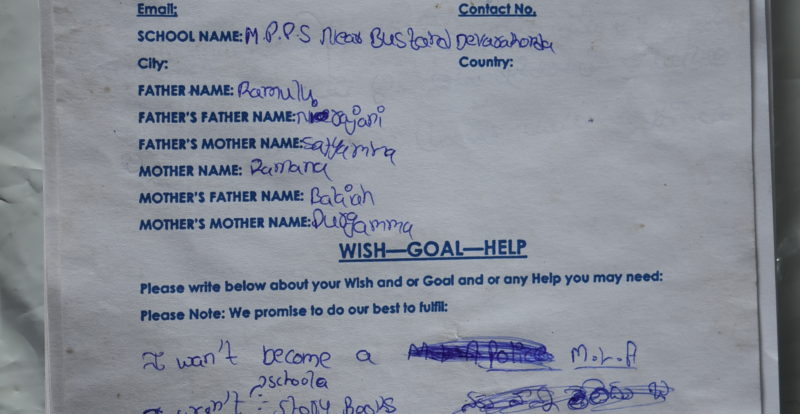 Email: Contact No.
SCHOOL NAME: M.P.P.S Near Bustand Devarakonda
City: Country:
FATHER NAME: Ramulu
FATHER'S FATHER NAME: Nirajani
FATHER'S MOTHER NAME: Sattamma
MOTHER NAME: Ramana
MOTHER'S FATHER NAME: Batiah
MOTHER'S MOTHER NAME: Durgamma
WISH—GOAL—HELP
Please write below about your Wish and or Goal and or any Help you may need:
Please Note: We promise to do our best to fulfil:
I wan't become a M.L.A
schoola
I wan't story Books